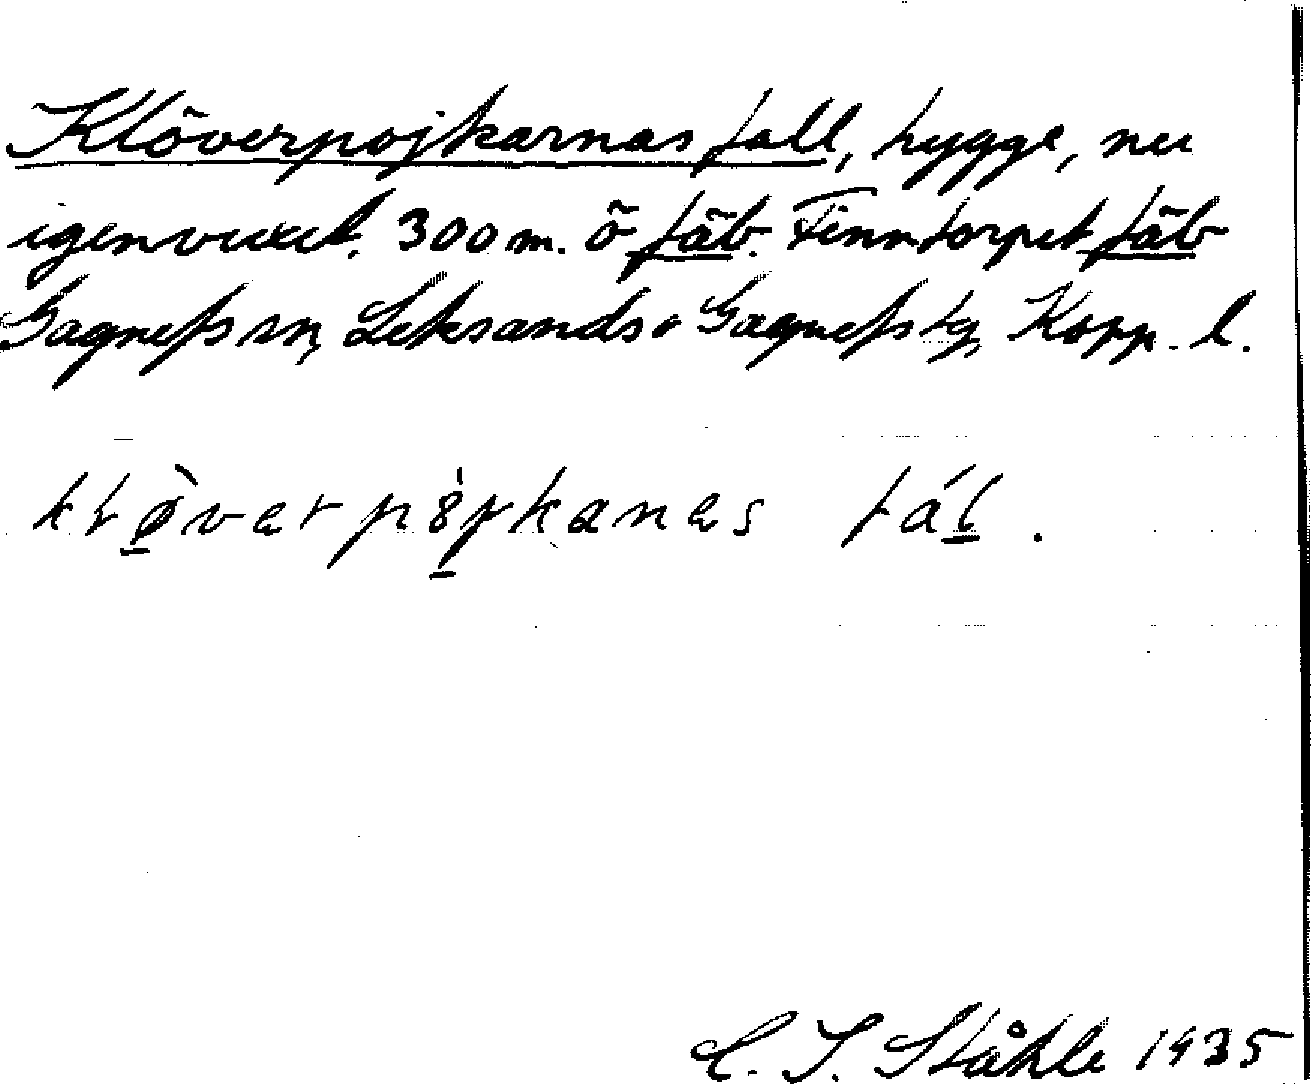 Klöverpojkarnas fall, hygge, nu
igenvuxet. 300 m. ö fäb. Finntorpet fäb
Gagnefs sn, Leksands o Gagnefs tg, Kopp. l.
fál.
C. I. Ståhle 1935